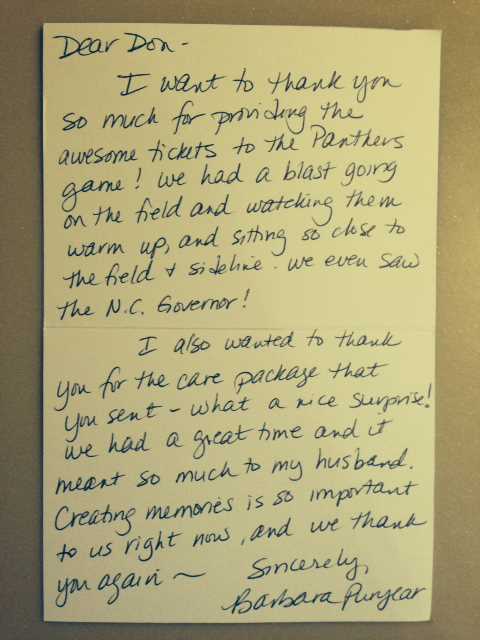 Dear Don -
I want to thank you
so much for providing the
awesome tickets to the Panthers
game! We had a blast going
on the field and watching them
warm up, and sitting so close to
the field + sideline. We even saw
the N.C. Governor!
I also wanted to thank
you for the care package that
you sent - what a nice surprise!
We had a great time and it
meant so much to my husband.
Creating memories is so important
to us right now, and we thank
you again ~
Sincerely,
Barbara Puryear